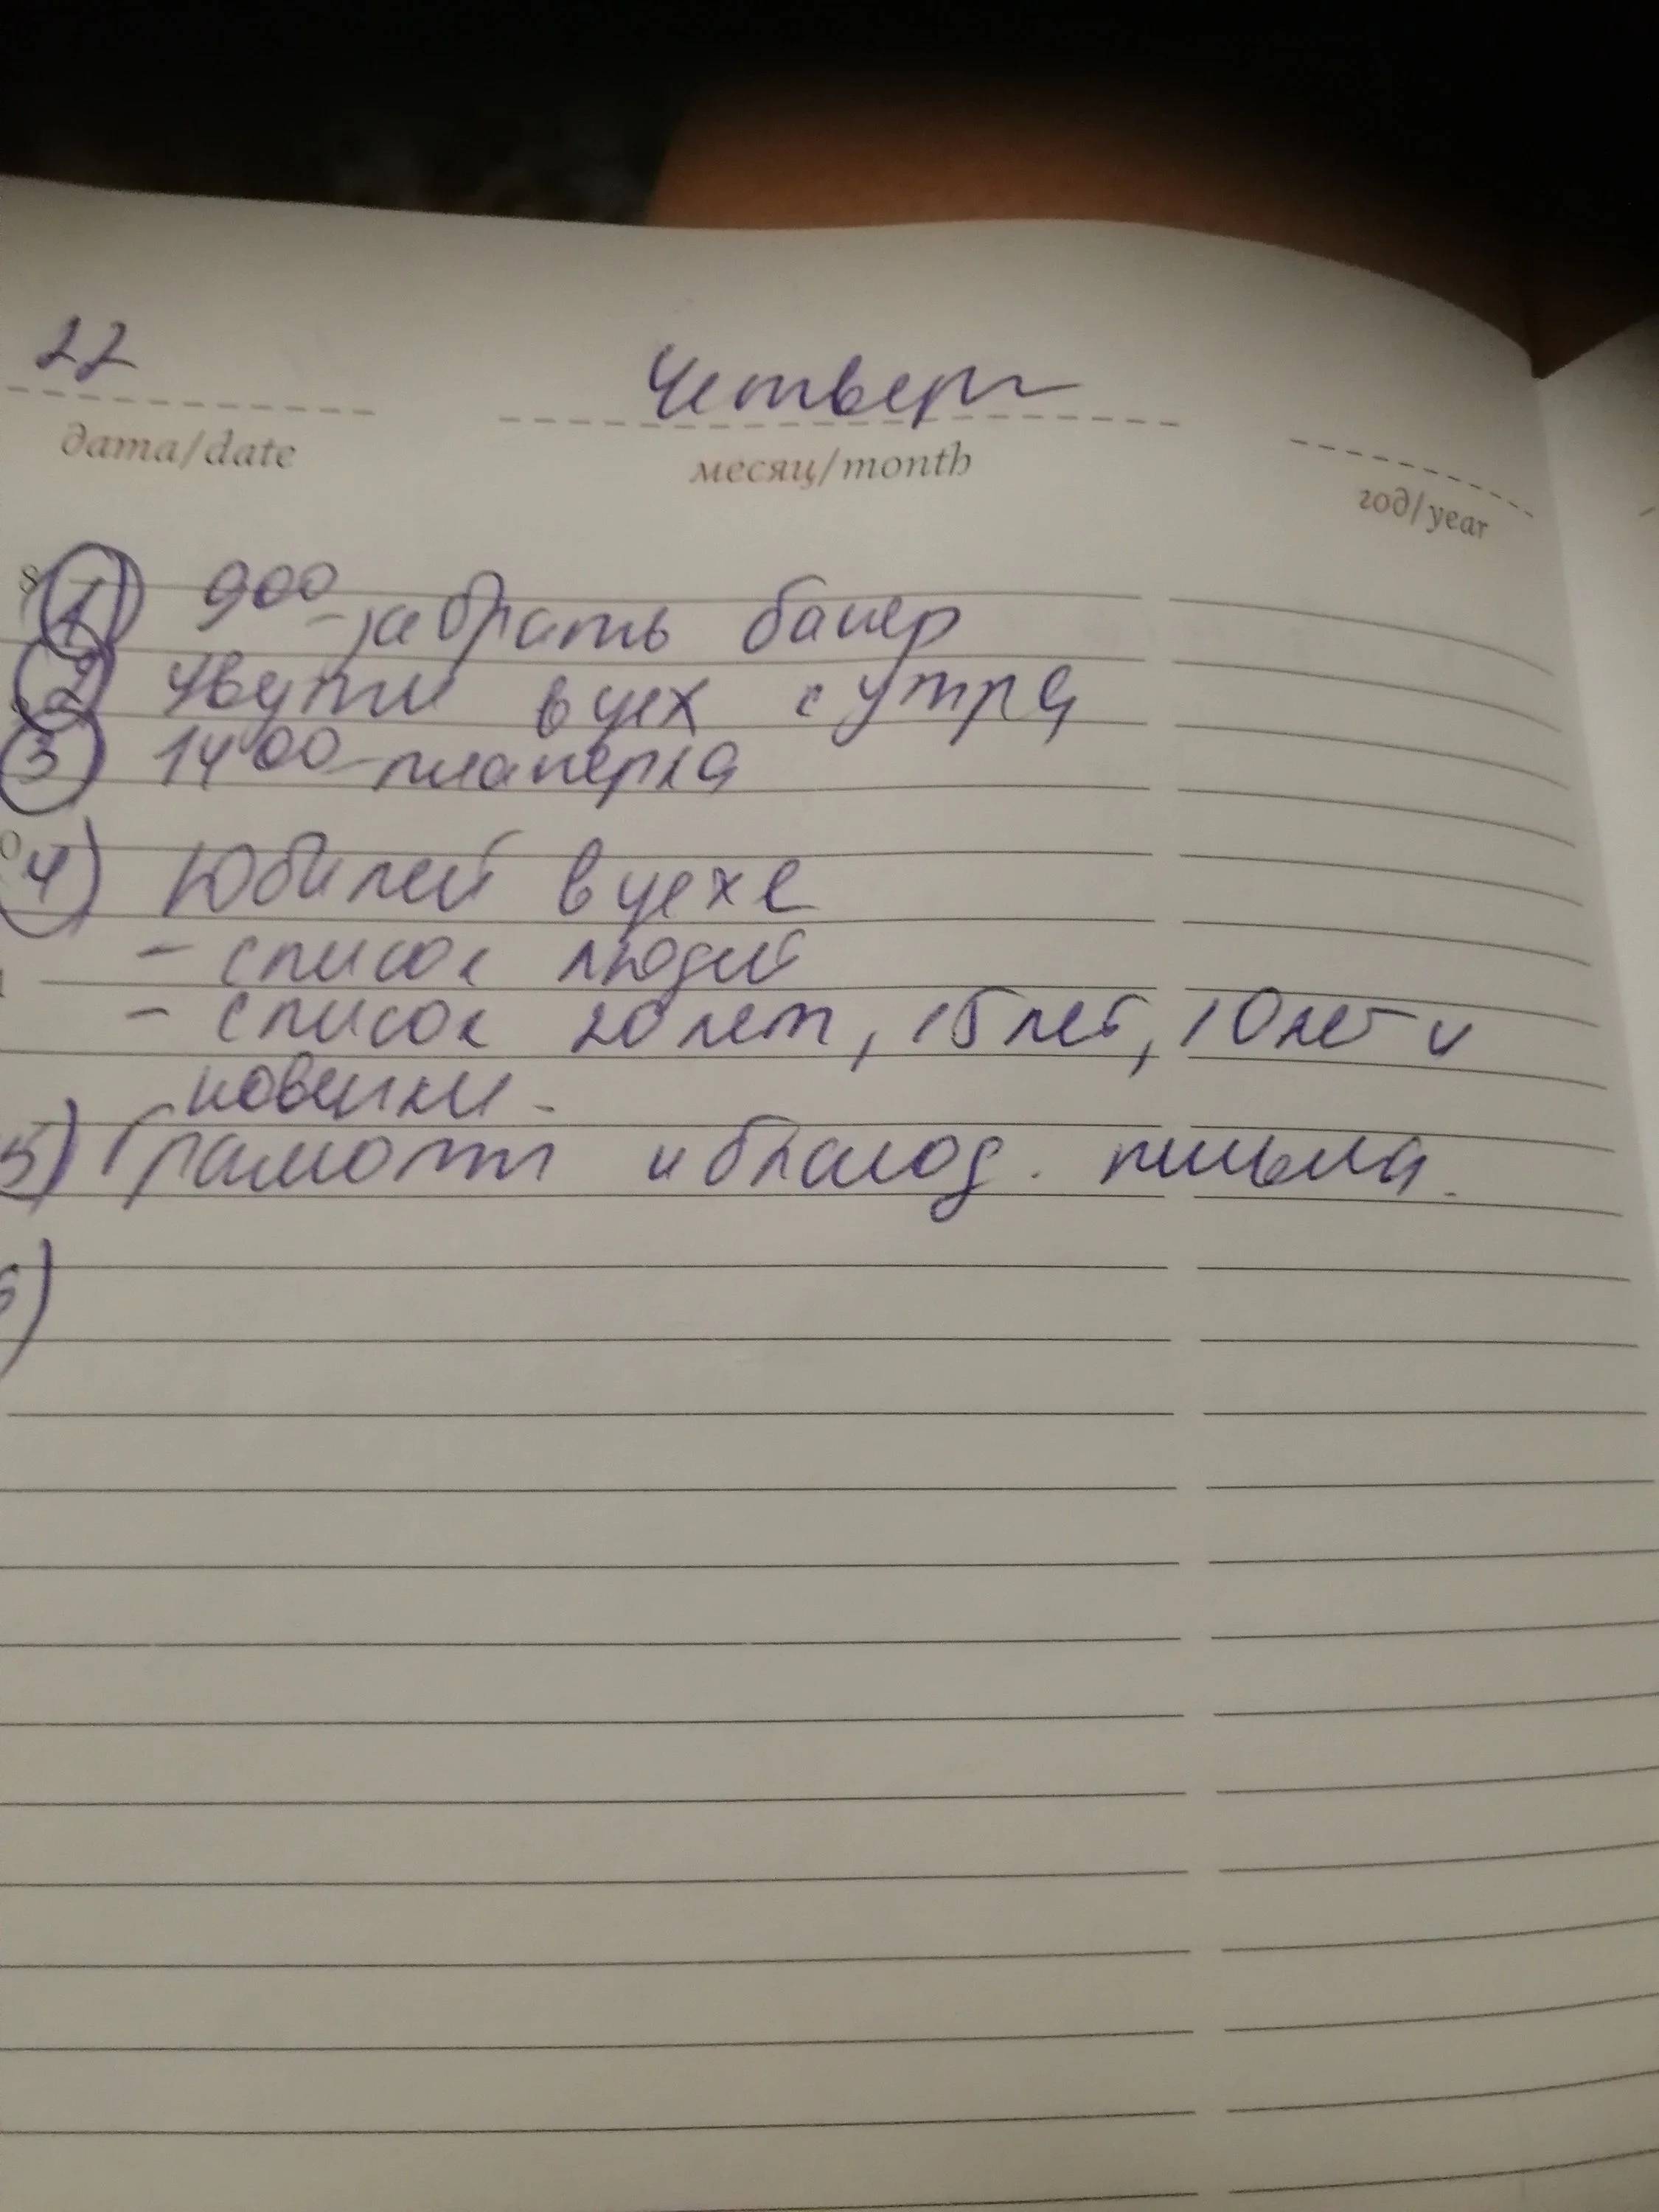 22 Четверг
дата/date месяц/month год/year
8
1) 9 00 - забрать банер
2) в цех с утра
3) 14 00 - планерка
4) Юбилей в цехе
- список людей
- список 20 лет, 15 лет, 10 лет и
новенки.
5) Грамоты и благод. письма.
6)